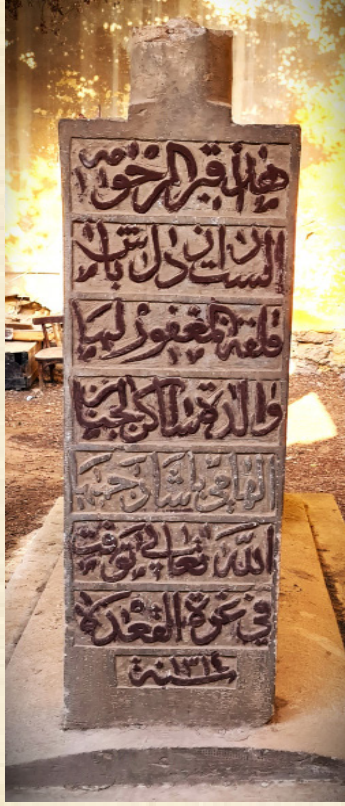 هذا قبر المرحومة
الست نازدل باش
قلفة المغفور لها
والدة ساكن الجنان
الهامي باشا رحمة
الله تعالى توفيت
في غرة القعدة
سنة ١٣١٤